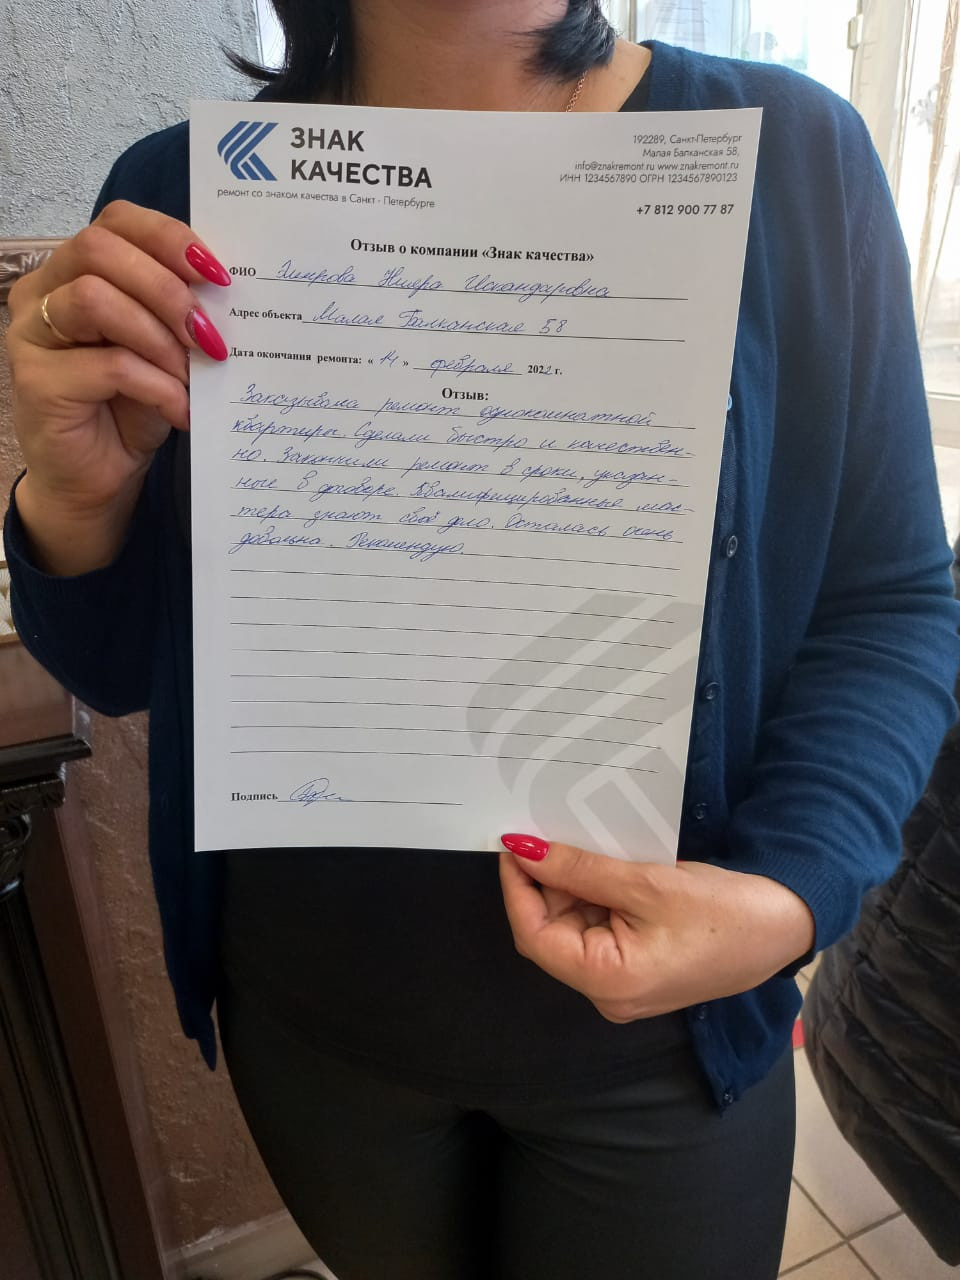 ЗНАК
КАЧЕСТВА
ремонт со знаком качества в Санкт - Петербурге
192289, Санкт-Петербург
Малая Балканская 58,
info@znakremont.ru www.znakremont.ru
ИНН 1234567890 ОГРН 1234567890123
+7 812 900 77 87
Отзыв о компании «Знак качества»
ФИО Искандаровна
Адрес объекта Малая Балканская 58
Дата окончания ремонта: « 14 » февраля 2022 г.
Отзыв:
Заказывала ремонт однокомнатной
квартиры. Сделали быстро и качествен-
но. Закончили ремонт в сроки, указан-
ные в договоре. Квалифицированные мас-
тера знают своё дело. Осталась очень
довольна. Рекомендую.
Подпись